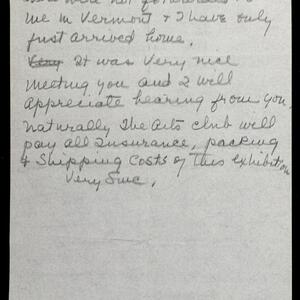 not forwarded to
me in Vermont & I have only
just arrived home.
Very It was very nice
meeting you and I will
appreciate hearing from you
Naturally The Arts Club will
pay all Insurance, packing
& Shipping Costs of This exhibition
Very Sinc.